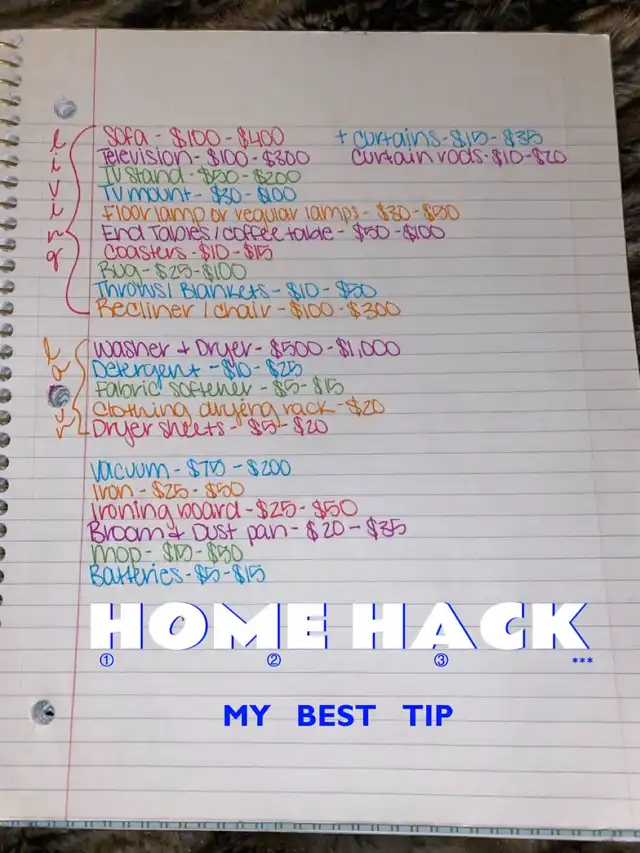 Sofa - $100 - $400
Television - $100 - $300
TV Stand - $50 - $200
TV mount - $30 - $100
Floor lamp or regular lamps - $30 - $50
End Tables / coffee table - $50 - $100
Coasters - $10 - $15
Rug - $25 - $100
Throws / Blankets - $10 - $50
Recliner / chair - $100 - $300
+ curtains - $15 - $35
curtain rods - $10 - $20
Washer + Dryer - $500 - $1,000
Detergent - $10 - $25
Fabric softener - $5 - $15
Clothing drying rack - $20
Dryer sheets - $5 - $20
Vacuum - $75 - $200
Iron - $25 - $50
Ironing board - $25 - $50
Broom + Dust pan - $20 - $35
Mop - $15 - $50
Batteries - $5 - $15
HOME HACK
① ② ③ ***
MY BEST TIP